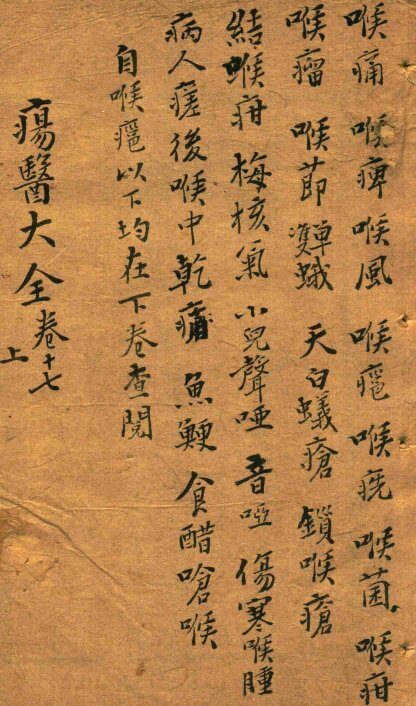 喉痛 喉痺 喉風 喉癰 喉疣 喉菌 喉疳
喉瘤 喉節 雙單蛾 天白蟻瘡 鎖喉瘡
結喉疳 梅核氣 小兒聲啞 音啞 傷寒喉腫
病人瘥後喉中乾痛 魚鯁 食醋嗆喉
自喉癰以下均在下卷查閱
瘍醫大全卷十七上